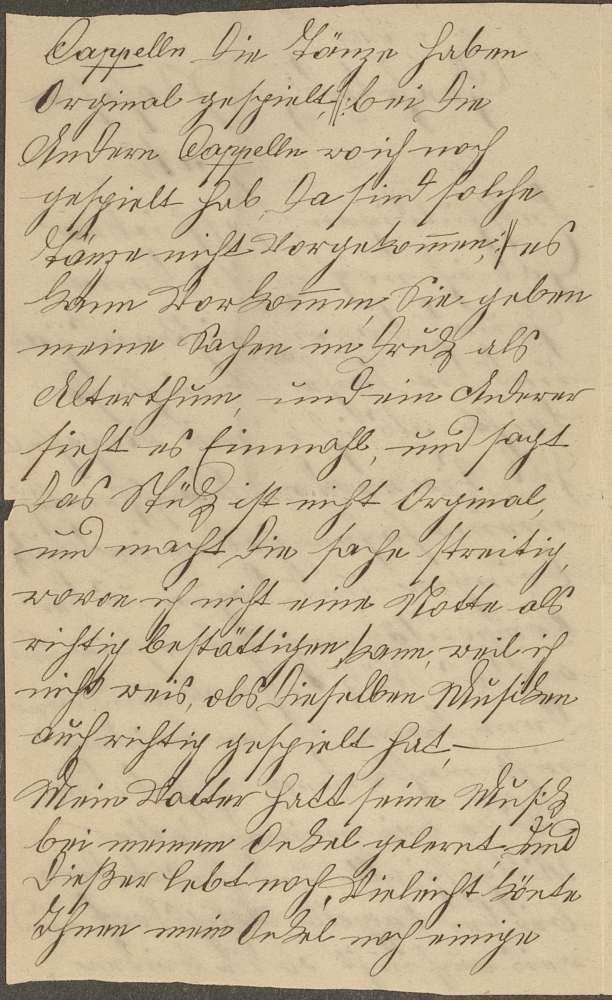 Cappelle die Tänze haben
Orginal gespielt, |: bei die
Andern Cappelln wo ich noch
gespielt hab, da sind solche
Tänze nicht Vorgekom̄en, :| es
kann Vorkom̄en, Sie geben
meine Sachen im Druk als
Alterthum, und ein Anderer
sieht es Einmahl, und sagt
das Stük ist nicht Orginal,
und macht die sache streitig,
wovon ich nicht eine Notte als
richtig bestättigen kann, weil ich
nicht weis, obs Dieselben Musiken
auch richtig gespielt hat, —
Mein Vatter hatt seine Musik
bei meinem Onkel gelernt, und
Dießer lebt noch, Vieleicht könte
Ihnen mein Onkel noch einige